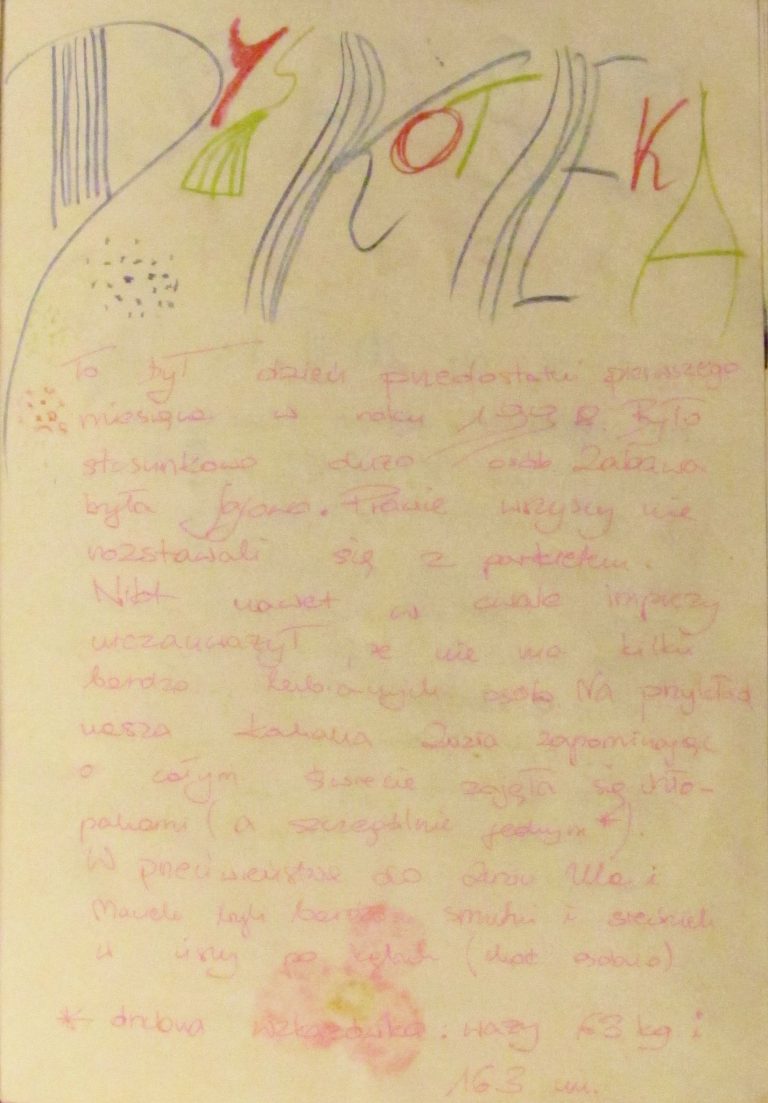 DYSKOTEKA
To był dzień przedostatni pierwszego
miesiąca w roku 1998. Było
stosunkowo dużo osób. Zabawa
była fajowa. Prawie wszyscy nie
rozstawali się z parkietem.
Nikt nawet w czasie imprezy
niezauważył, że nie ma kilku
bardzo lubianych osób. Na przykład
nasza kochana Zuzia zapominając
o całym świecie zajęła się chło-
pakami (a szczególnie jednym*).
W przeciwieństwie do Zuzi Ula i
byli bardzo smutni i siedzieli
w po kątach (choć osobno)
* drobna wskazówka: waży 63 kg i
163 cm.